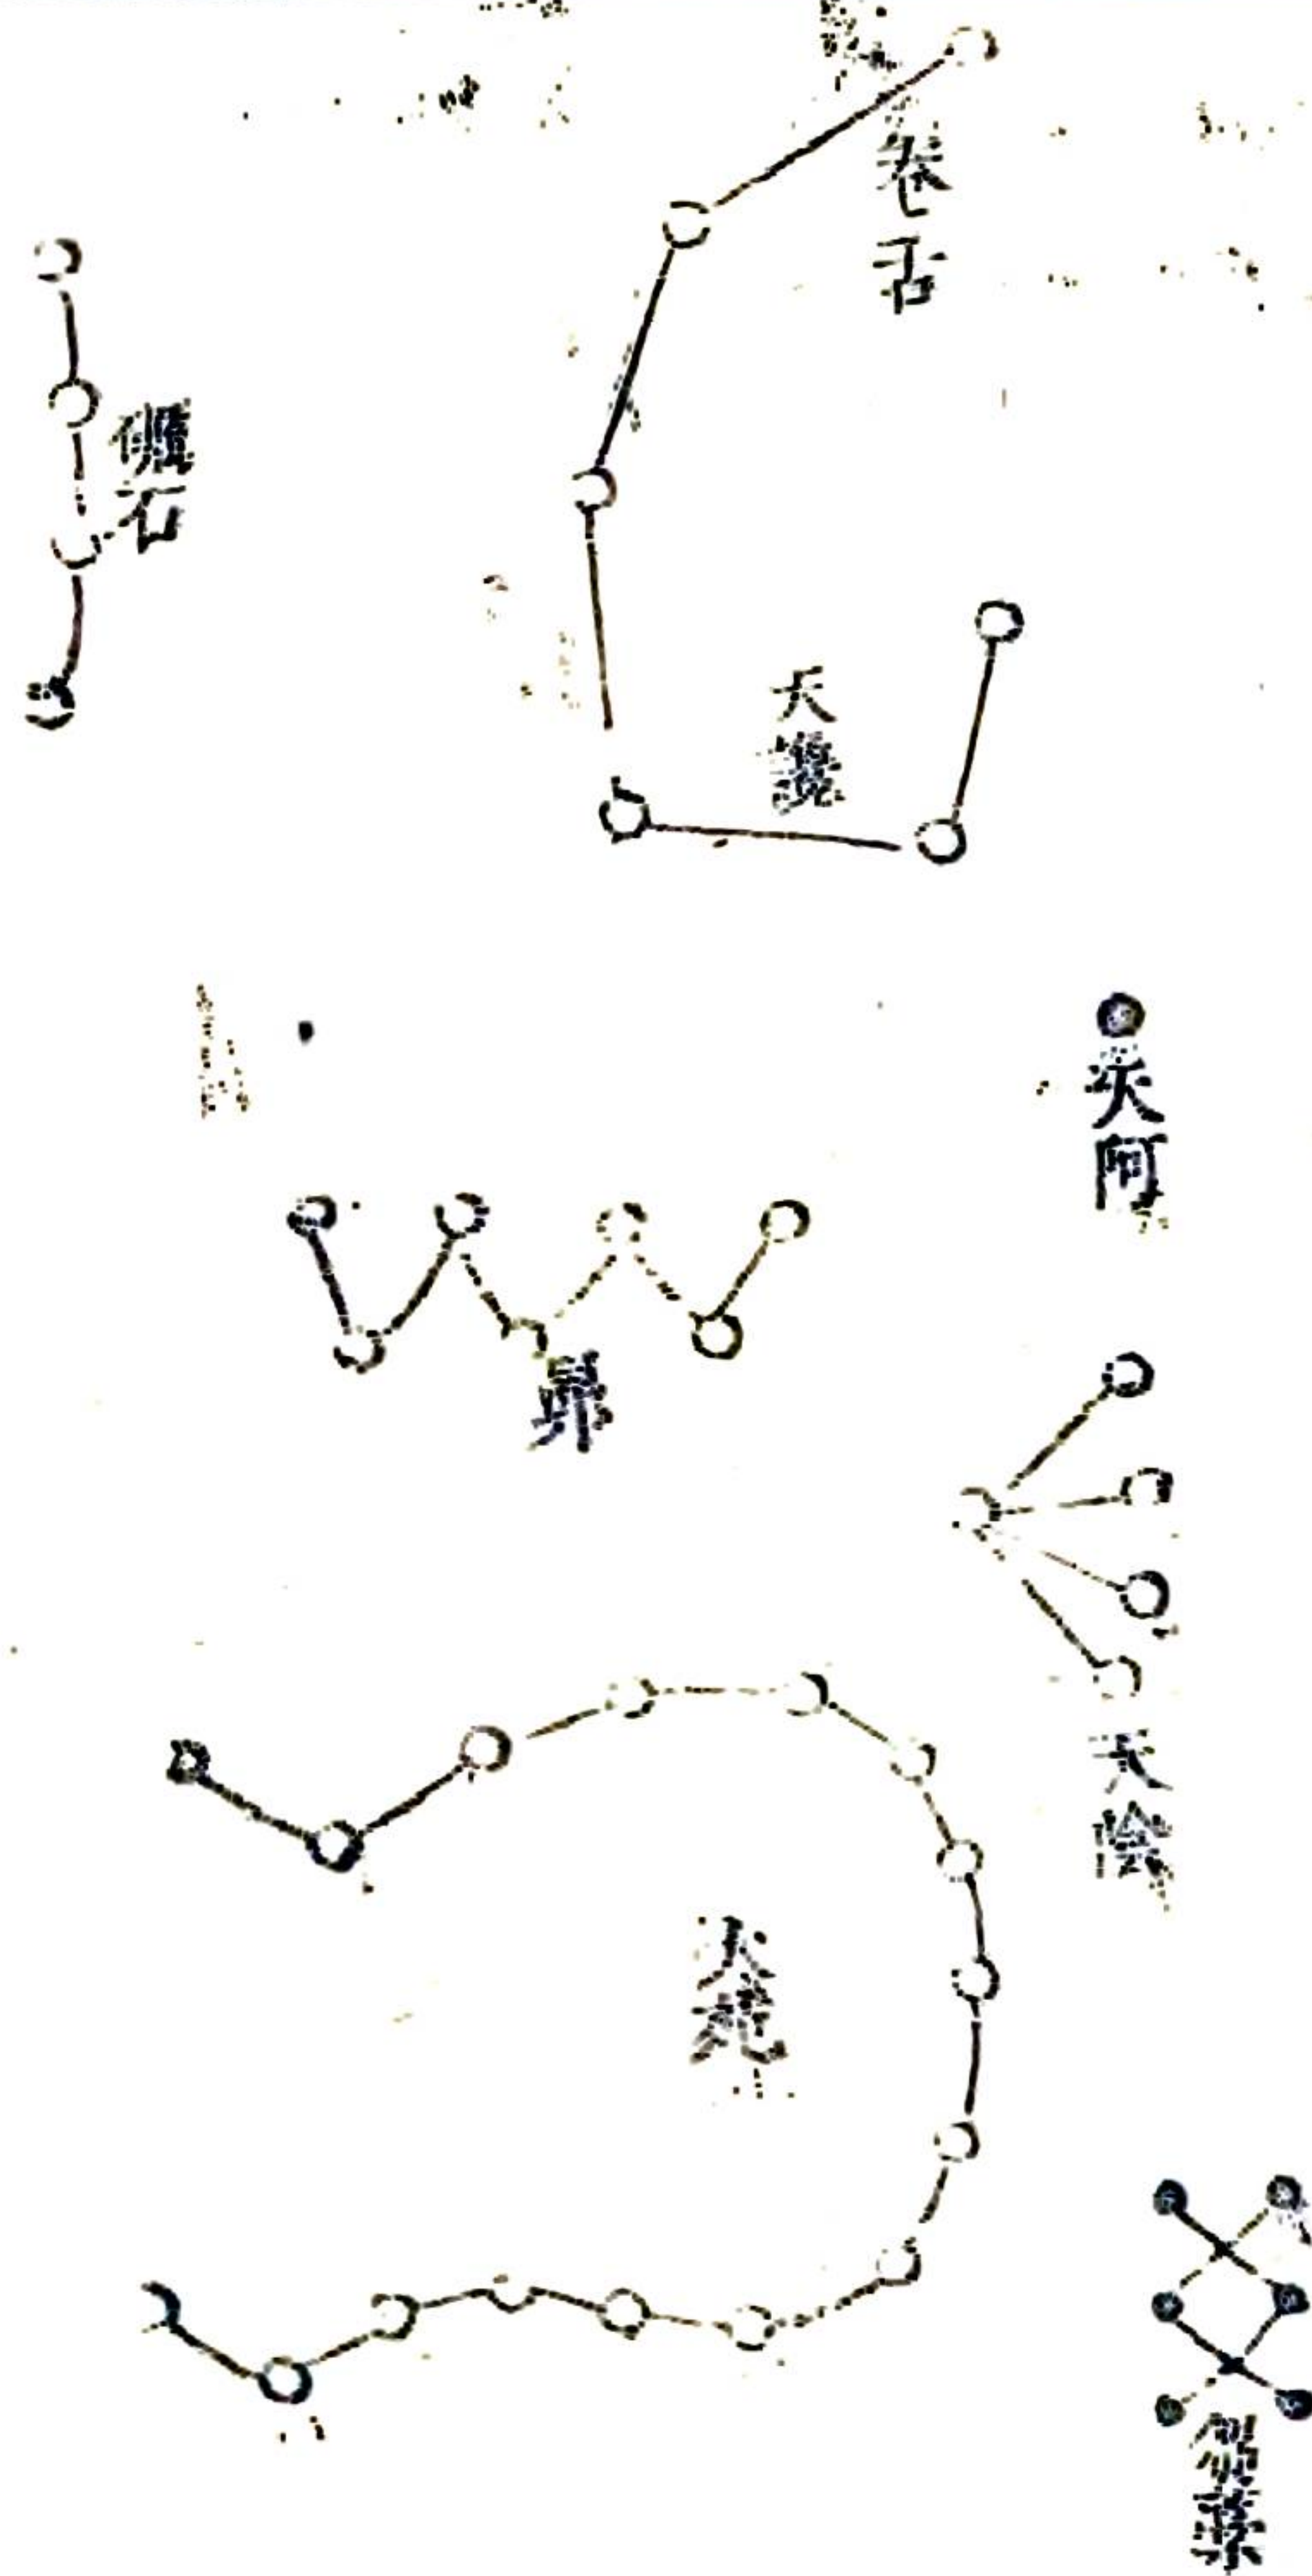 卷舌
礪石
天讒
天阿
昴
天陰
天苑
芻藁